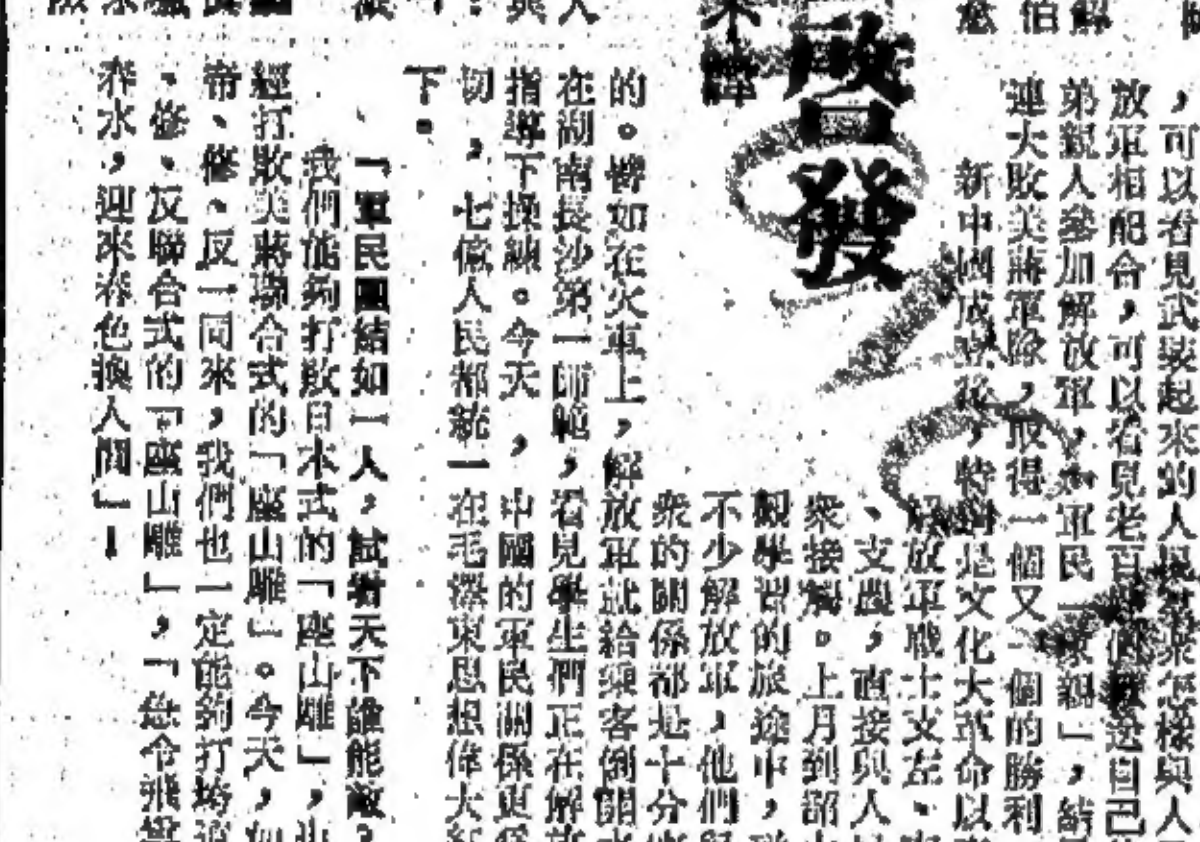 啓發
，可以看見武裝起來的人民羣衆怎樣與人
放軍相配合，可以看見老百姓們歡送自己
弟親人參加解放軍，如軍民一家親」，結
連大敗美蔣軍隊，取得一個又一個的勝利
新中國成立後，特別是文化大革命以
解放軍戰士支左、
、支農，直接與人
衆接觸。上月到韶
觀學習的旅途中，
不少解放軍，他們
衆的關係都是十分
的。譬如在火車上，解放軍就給乘客倒開
在湖南長沙第一師範，看見學生們正在解放
指導下操練。今天，中國的軍民關係更
切，七億人民都統一在毛澤東思想偉大紅
下。
「軍民團結如一人，試看天下誰能敵？
我們能夠打敗日本式的「座山雕」，也
經打敗美蔣聯合式的「座山雕」。今天，如
帝、修、反一同來，我們也一定能夠打垮
、修、反聯合式的「座山雕」，「怎令飛雪
春水，迎來春色換人間」！